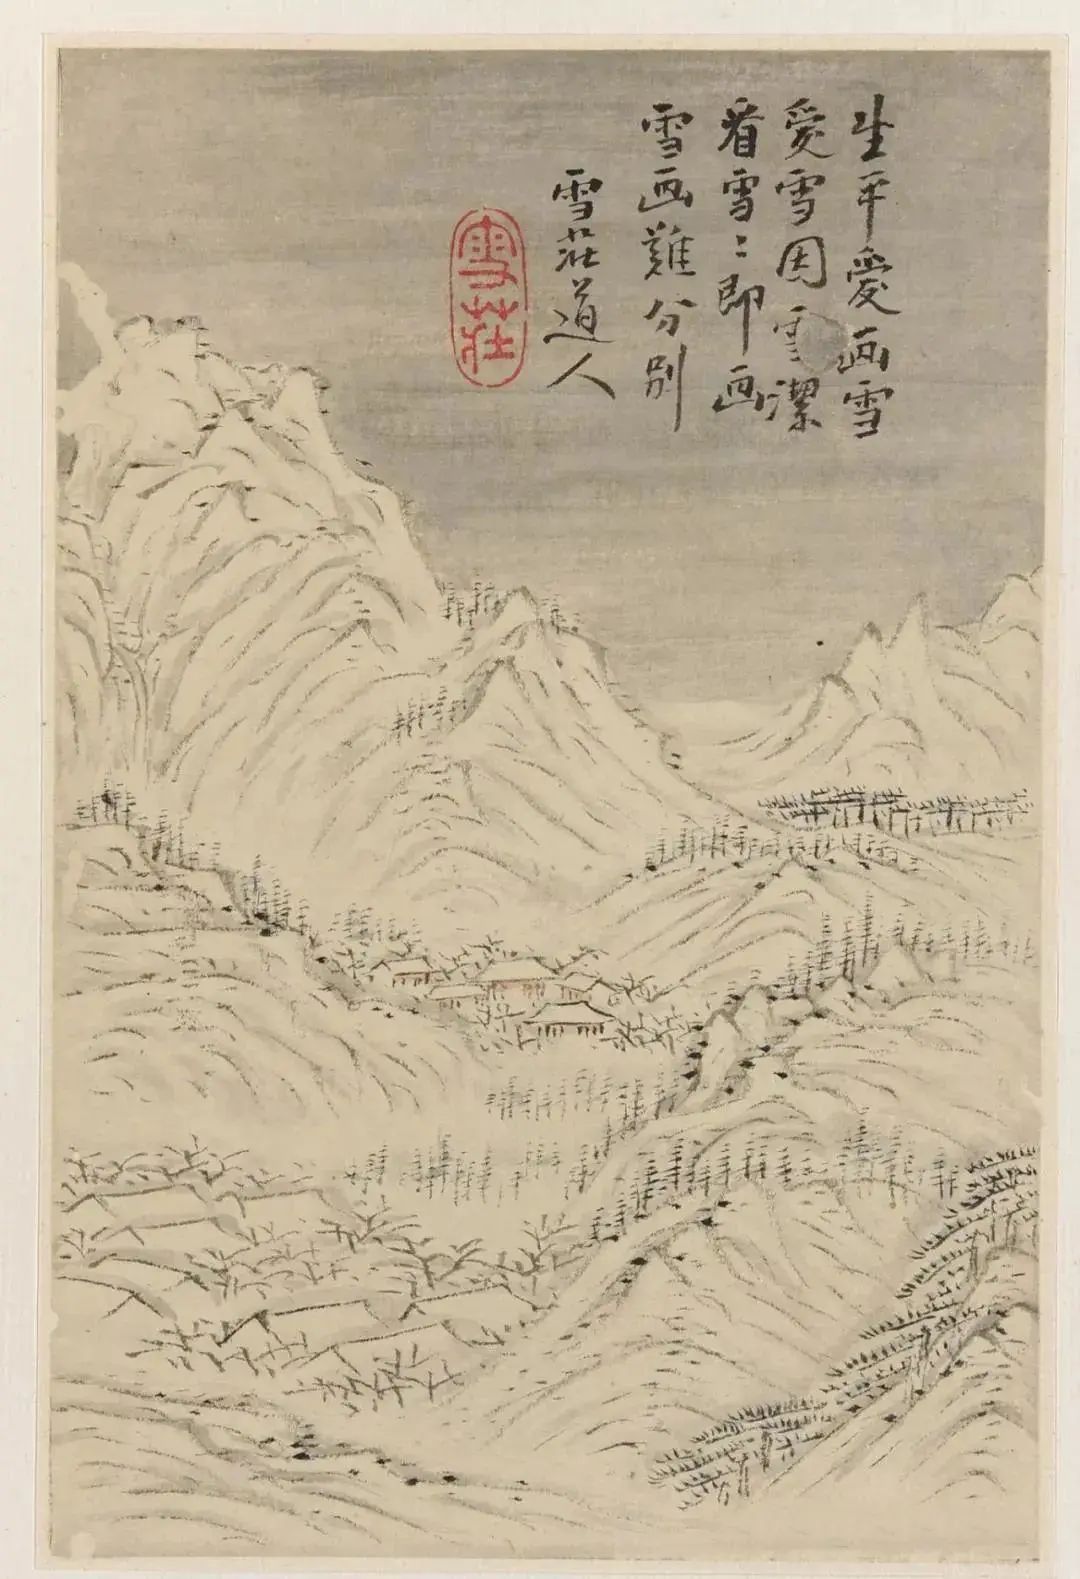 生平愛画雪
愛雪因雪潔
看雪〻即画
雪画難分別
雪莊道人
雪莊